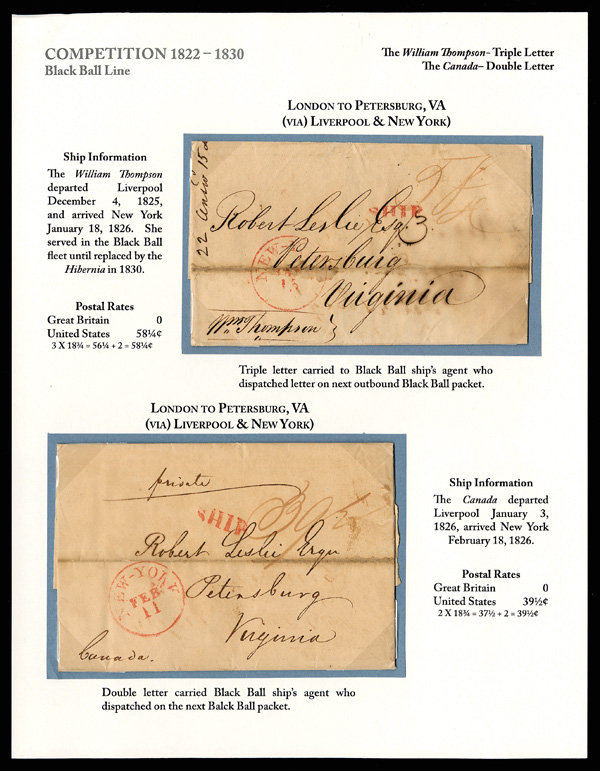 COMPETITION 1822 – 1830
Black Ball Line
The William Thompson- Triple Letter
The Canada– Double Letter
LONDON TO PETERSBURG, VA
(VIA) LIVERPOOL & NEW YORK)
Ship Information
The William Thompson
departed Liverpool
December 4, 1825,
and arrived New York
January 18, 1826. She
served in the Black Ball
fleet until replaced by the
Hibernia in 1830.
Postal Rates
Great Britain 0
United States 58¼¢
3 X 18¾ = 56¼ + 2 = 58¼¢
SHIP
Robert Leslie Esq.
Petersburg
Virginia
NEW-Y
Wm Thompson
Triple letter carried to Black Ball ship's agent who
dispatched letter on next outbound Black Ball packet.
LONDON TO PETERSBURG, VA
(VIA) LIVERPOOL & NEW YORK)
private
SHIP 39½
Robert Leslie Esqr
Petersburg
Virginia
NEW-YORK
FEB
11
Canada.
Ship Information
The Canada departed
Liverpool January 3,
1826, arrived New York
February 18, 1826.
Postal Rates
Great Britain 0
United States 39½¢
2 X 18¾ = 37½ + 2 = 39½¢
Double letter carried Black Ball ship's agent who
dispatched on the next Balck Ball packet.